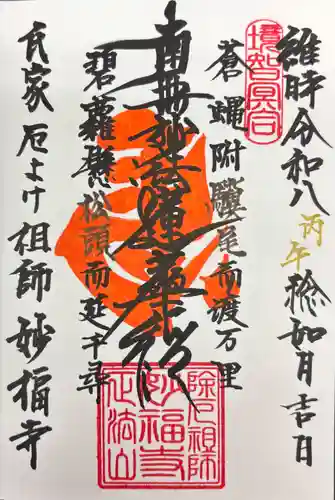 境智冥合
維時令和八丙午捻如月吉日
蒼蝿附驥尾而渡万里
南無妙法蓮華経
碧蘿懸松頭而延千尋
除厄祖師
妙福寺
正法山
厄よけ祖師妙福寺